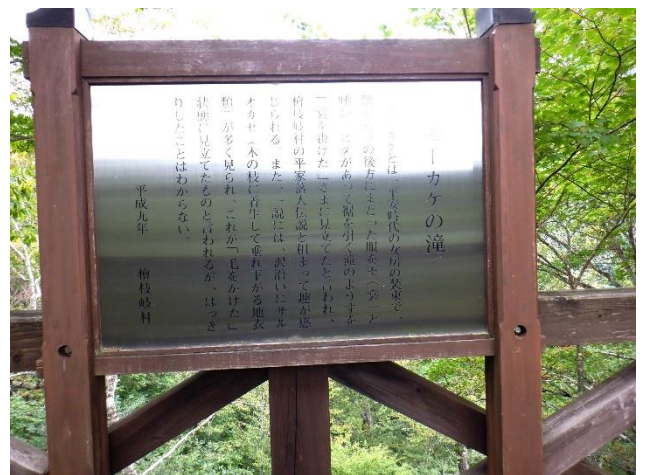 モーカケの滝
は、平安時代の女房の装束で、
の後方にまとった服をモ（裳）と
呼び、ヒダがあって裾を引く滝のようすを
「裳を掛けた」さまに見立てたと言われ、
檜枝岐村の平家落人伝説と相まって趣が感
じられる。また、一説には、沢沿いにサル
オガセ（木の枝に着生して垂れ下がる地衣
類）が多く見られ、これが「毛をかけた」
状態に見立てたものと言われるが、はっき
りしたことはわからない。
平成九年　檜枝岐村